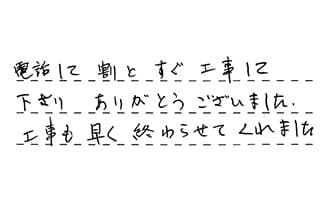 電話して 割と すぐ 工事して
下さり ありがとう ございました.
工事も 早く 終わらせて くれました